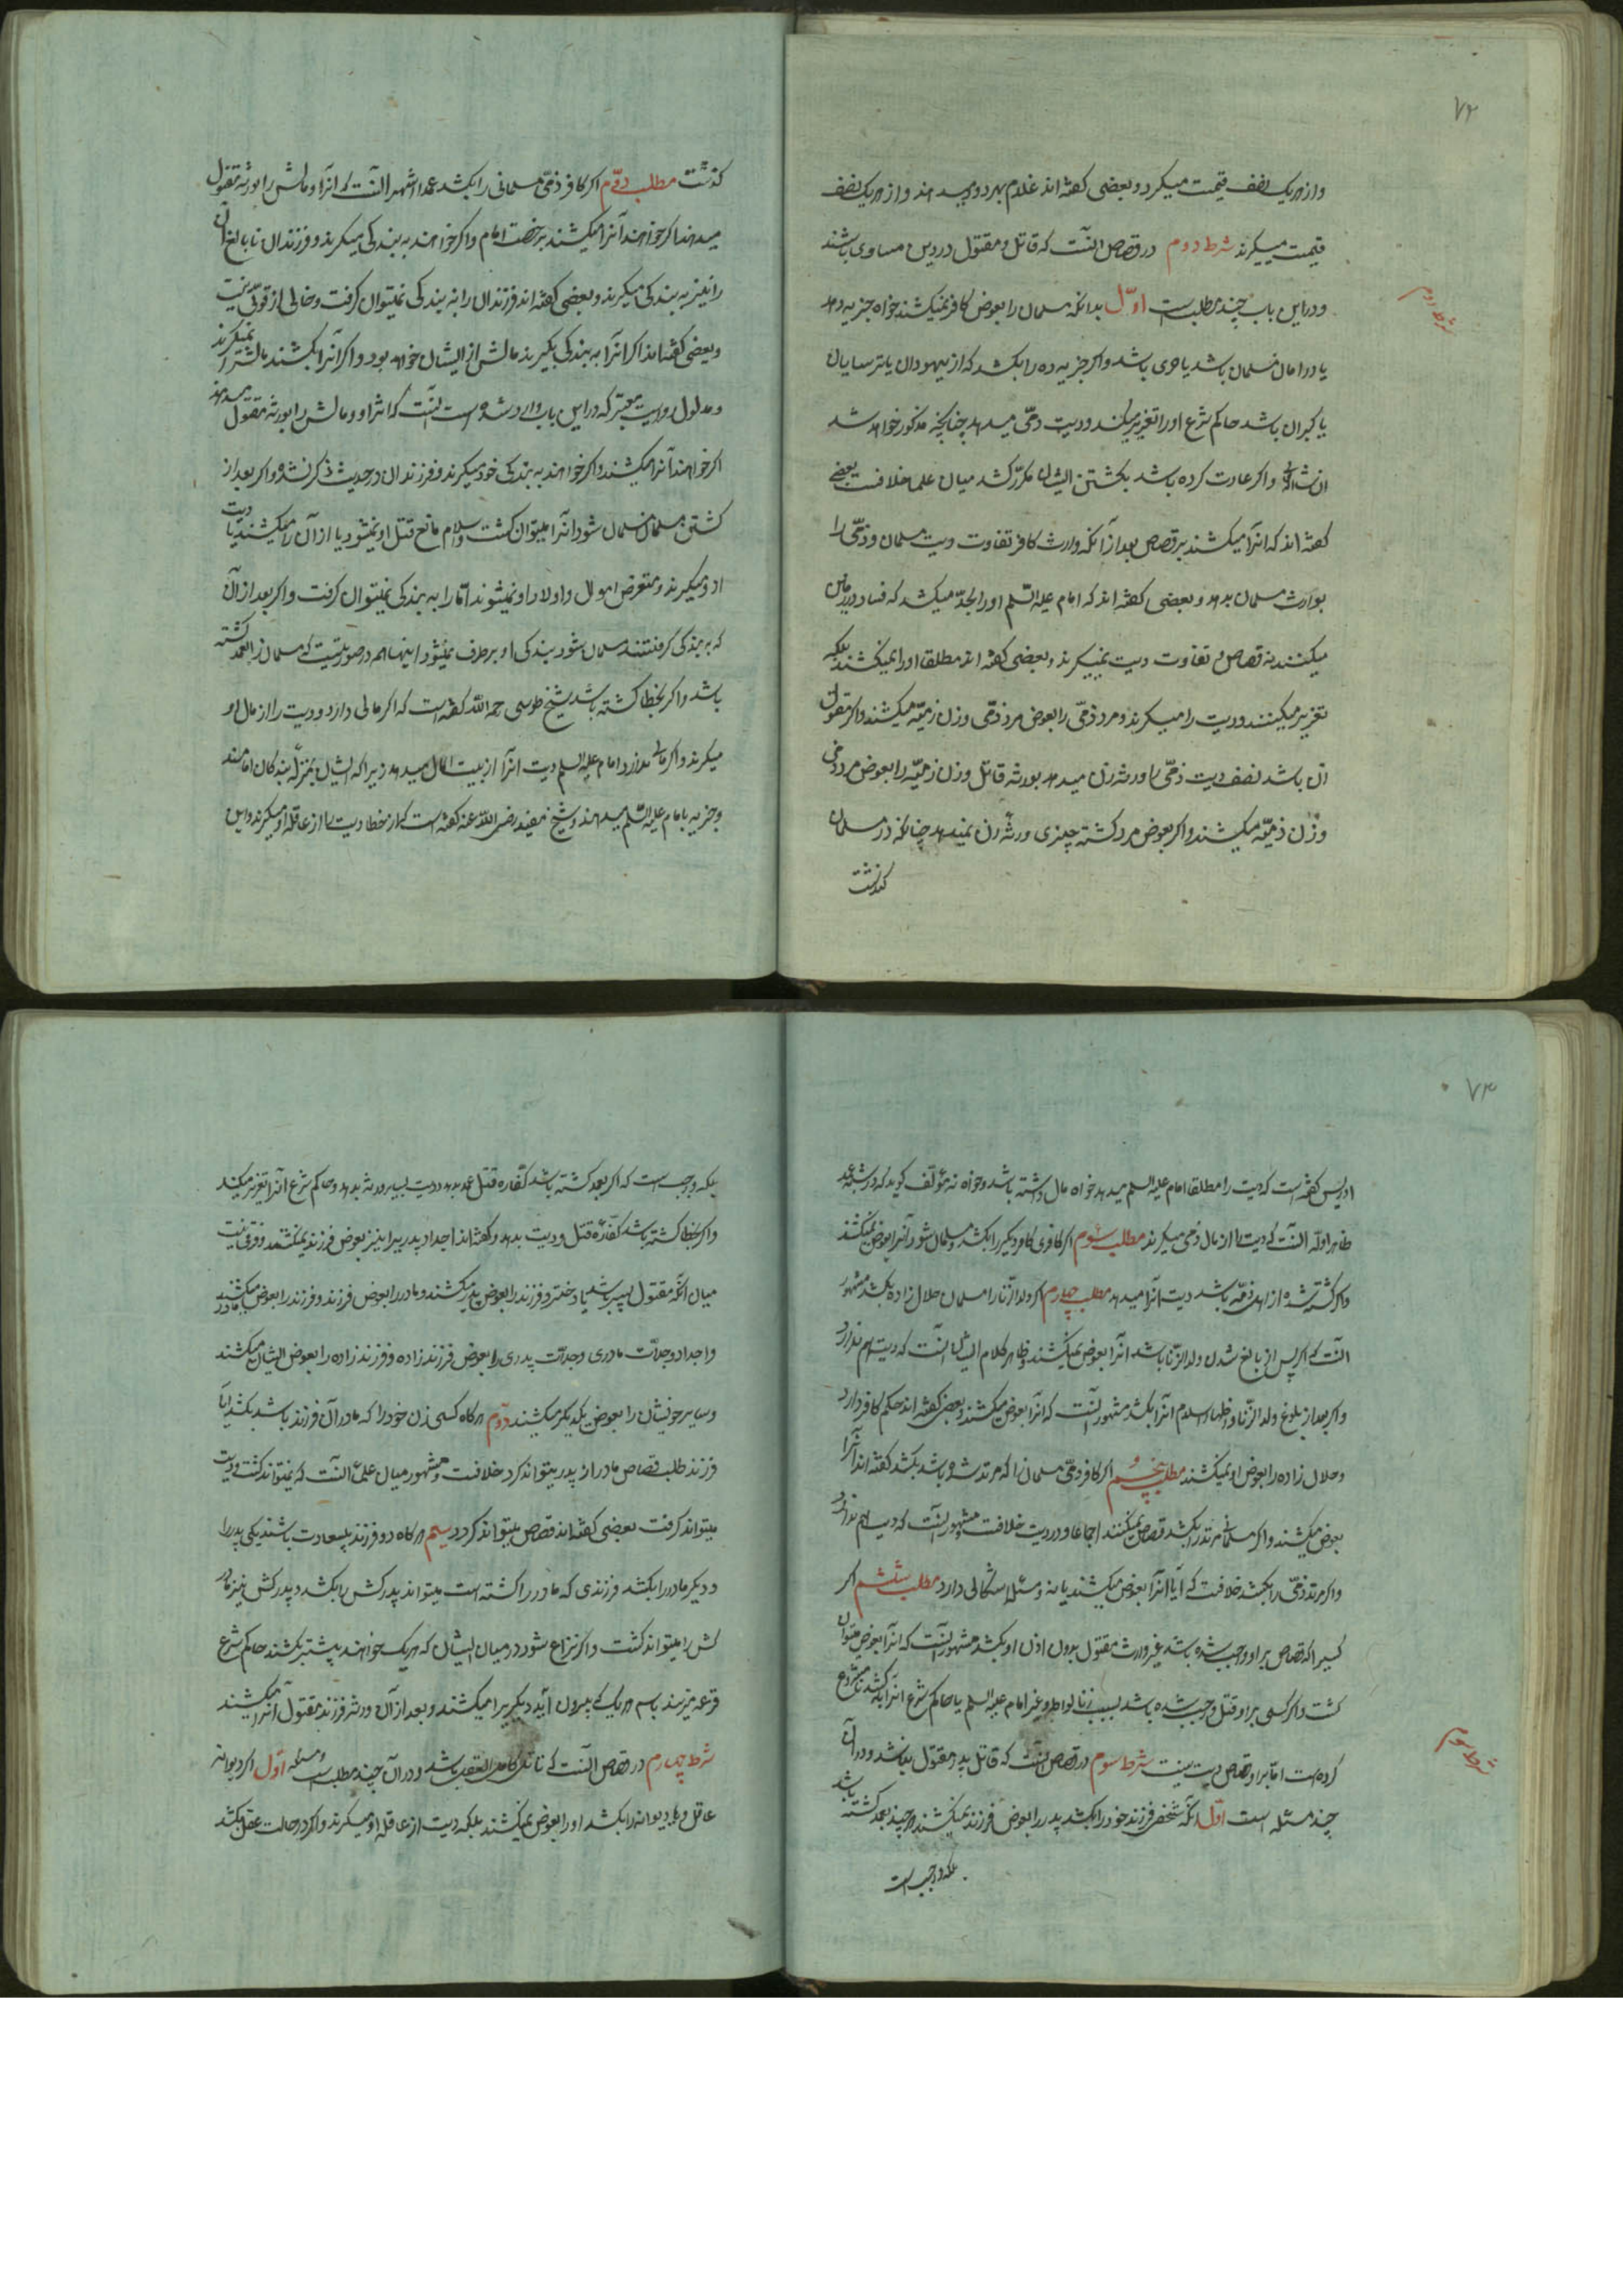 ۷۲
و از هر یک نصف قیمت میگیرد و بعضی گفته‌اند غلام بهر دو میدهند و از هر یک نصف
قیمت میگیرند شرط دوم در قصاص آنست که قاتل و مقتول در دین مساوی باشند
شرط دوم
و در این باب چند مطلب است اوّل بدانکه مسلمان را بعوض کافر نمیکشند خواه جزیه دهد
یا در امان مسلمان باشد یا حربی باشد و اگر جزیه ده را بکشد که از یهودان یا ترسایان
یا گبران باشد حاکم شرع او را تعزیر میکند و دیت ذمّی میدهد چنانچه مذکور خواهد شد
ان شاء الله و اگر عادت کرده باشد بکشتن ایشان و مکرّر کشد میان علما خلافست بعضی
گفته‌اند که انرا میکشند بر قصاص بعد از آنکه وارث کافر تفاوت دیت مسلمان و ذمّی را
بوارث مسلمان بدهد و بعضی گفته‌اند که امام علیه السّلم او را بحدّ میکشد که فساد در زمین
میکنند نه قصاص و تفاوت دیت نمیگیرند و بعضی گفته‌اند مطلقا او را نمیکشند بلکه
تعزیر میکنند و دیت را میگیرند و مرد ذمّی را بعوض مرد ذمّی و زن ذمیّه میکشند و اگر مقتول
زن باشد نصف دیت ذمّی را ورثه زن میدهد بورثه قاتل و زن ذمیّه را بعوض مرد ذمّی
و زن ذمیّه میکشند و اگر بعوض مرد کشته چیزی ورثه زن نمیدهد چنانکه در مسلمان
گذشت
گذشت مطلب دوّم اگر کافر ذمّی مسلمانی را بکشد عمدا اشهر آنست که انرا و مالش را بورثه مقتول
میدهند اگر خواهند آنرا میکشند برخصت امام و اگر خواهند به بندگی میگیرند و فرزندان نابالغ آن
را نیز به بندگی میگیرند و بعضی گفته‌اند فرزندان را به بندگی نمیتوان گرفت و خالی از قوّتی نیست
و بعضی گفته‌اند اگر انرا به بندگی بگیرند مالش از ایشان خواهد بود و اگر انرا بکشند مالش را نمیگیرند
و مدلول روایت معتبر که در این باب وارد شده است آنست که انرا و مالش را بورثه مقتول میدهند
اگر خواهند آنرا میکشند و اگر خواهند به بندگی خود میگیرند و فرزندان در حدیث ذکر نشده و اگر بعد از
کشتن مسلمان مسلمان شود انرا میتوان کشت و اسلام مانع قتل او نمیشود یا از آن را میکشند یا دیت
از او میگیرند و متعرض اموال و اولاد او نمیشوند امّا را به بندگی نمیتوان گرفت و اگر بعد از آن
که به بندگی گرفتند مسلمان شود بندگی او برطرف نمیشود اینها هم در صورتیست که مسلمان را بعمد کشته
باشد و اگر بخطا کشته باشد شیخ طوسی رحمه الله گفته است که اگر مالی دارد دیت را از مال او
میگیرند و اگر مالی ندارد امام علیه السلم دیت انرا از بیت المال میدهد زیرا که ایشان بمنزله بندگان امامند
و جزیه بامام علیه السّلم میدهند و شیخ مفید رضی الله عنه گفته است که در خطا دیت را از عاقله او میگیرند و ابن
۷۳
ادریس گفته است که دیت را مطلقا امام علیه السلم میدهد خواه مال داشته باشد و خواه نه مؤلّف گوید که در شبه عمد
ظاهر ادلّه آنست که دیت را از مال ذمی میگیرند مطلب سوم اگر کافری کافر دیگر را بکشد و مسلمان شود آنرا بعوض نمیکشند
و اگر کشته شده از اهل ذمّه باشد دیت انرا میدهد مطلب چهارم اگر ولد الزّنا را مسلمان حلال زاده بکشد مشهور
آنست که اگر پس از بالغ شدن ولد الزّنا باشد انرا بعوض نمیکشند و ظاهر کلام ایشان آنست که دیت هم ندارد
و اگر بعد از بلوغ ولد الزّنا و اظهار اسلام انرا بکشد مشهور آنست که انرا بعوض میکشند و بعضی گفته‌اند حکم کافر دارد
و حلال زاده را بعوض او نمیکشند مطلب پنجم اگر کافر ذمّی مسلمان را که مرتد شده باشد بکشد گفته‌اند انرا
بعوض میکشند و اگر مسلمانی مرتد را بکشد قصاص نمیکنند اجماعا و در دیت خلافست و مشهور آنست که دیت هم ندارد
و اگر مرتد ذمّی را بکشد خلافست که آیا انرا بعوض میکشند یا نه و مسئله اشکالی دارد مطلب ششم اگر
کسیرا که قصاص بر او واجب شده باشد غیر وارث مقتول بدون اذن او بکشد مشهور آنست که انرا بعوض میتوان
کشت و اگر کسی بر او قتل واجب شده باشد بسبب زنا یا لواط و غیر امام علیه السلم یا حاکم شرع انرا بکشد نامشروع
کرده است امّا بر او قصاص و دیت نیست شرط سوم در قصاص آنست که قاتل پدر مقتول نباشد و در آن
شرط سوم
چند مسئله است اوّل آنکه شخصی فرزند خود را بکشد پدر را بعوض فرزند نمیکشند هر چند بعمد کشته باشد
بلکه واجب است
بلکه واجب است که اگر بعمد کشته باشد کفّاره قتل عمد بدهد و دیت بسایر ورثه بدهد و حاکم شرع آنرا تعزیر میکند
و اگر بخطا کشته باشد کفّاره قتل و دیت بدهد و گفته‌اند اجداد پدریرا نیز بعوض فرزند نمیکشند و فرقی نیست
میان آنکه مقتول پسر باشد یا دختر و فرزند را بعوض پدر میکشند و مادر را بعوض فرزند و فرزند را بعوض مادر میکشند
و اجداد و جدّات مادری و جدّات پدری را بعوض فرزند زاده و فرزند زاده را بعوض ایشان میکشند
و سایر خویشان را بعوض یکدیگر میکشند دوّم هر گاه کسی زن خود را که مادر آن فرزند باشد بکشد ایا
فرزند طلب قصاص مادر از پدر میتواند کرد خلافست و مشهور میان علما آنست که نمیتواند کشت و دیت
میتواند گرفت بعضی گفته‌اند قصاص میتواند کرد سیم هر گاه دو فرزند بیسعادت باشند یکی پدر را
و دیگر مادر را بکشد فرزندی که مادر را کشته است میتواند پدر کش را بکشد و پدر کش نیز مادر
کش را میتواند کشت و اگر نزاع شود در میان ایشان که هر یک خواهند پیشتر بکشند حاکم شرع
قرعه میزند باسم هر یک که بیرون آید دیگریرا میکشند و بعد از آن ورثه فرزند مقتول آنرا میکشند
شرط چهارم در قصاص آنست که قاتل کامل العقل باشد و در آن چند مطلب است و مسئله اوّل اگر دیوانه
عاقل و یا دیوانه را بکشد او را بعوض نمیکشند بلکه دیت از عاقله او میگیرند و اگر در حالت عقل بکشد